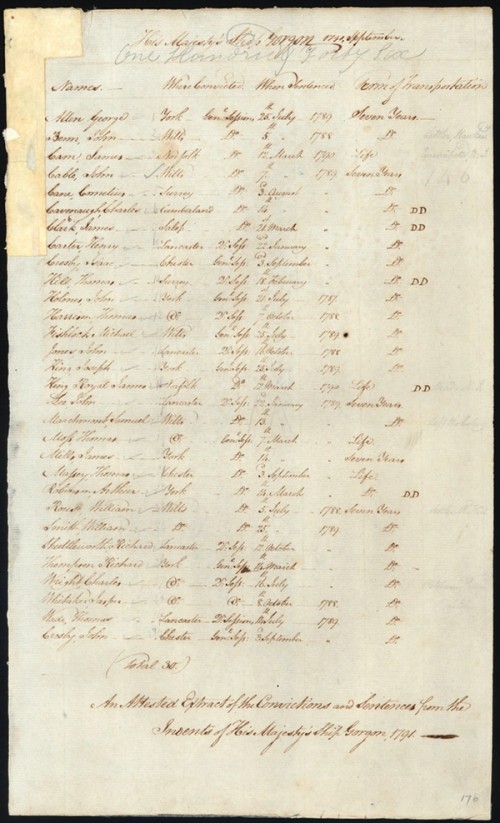 His Majesty's Ship Gorgon 1791, September.
One Hundred Forty Six
Names. Where Convicted When Sentenced Term of Transportation
Allen George York Genl Session 25 July 1789 Seven Years
John Wilts Do 5 1788 Do
Cam, James Norfolk Do 12 March 1790 Life
Cable, John Wilts Do 7 1789 Seven Years
Cane, Cornelius Surrey Do 3 August Do
Cavenaugh, Charles Cumberland Do 14 Do DD
Clark, James Salop Do 20 March Do DD
Carter, Henry Lancaster Do Sess 22 January Do
Chester Genl Sess 3 September Do
Hill, Thomas Surrey Do Sess 18 February Do DD
Holmes John York Genl Sess 21 July 1787 Do
Harrison, Thomas Do Do Sess 7 October 1788 Do
Michael Wilts Genl Sess 25 July 1789 Do
Jones John Lancaster Do Sess 16 October 1788 Do
King Joseph York Genl Sess 25 July 1789 Do
King Royal James Suffolk Do 12 March 1790 Life DD
Lee John Lancaster Do Sess 22 January 1789 Seven Years
Marchment, Samuel Wilts Do 13 Do
Moss Thomas Do Genl Sess 7 March Life
Mills, James York Do 14 Seven Years
Massey, Thomas Chester Do 3 September Life
Robinson Arthur York Do 14 March Do DD
William Wilts Do 5 July 1788 Seven Years
Smith William Do Do 25 1789 Do
Shuttleworth Richard Lancaster Do Sess 12 October Do
Thompson Richard York Genl Sess 14 March Do
Charles Do Do Sess 16 July Do
Whitaker Jasper Do Do 8 October 1788 Do
Wade, Thomas Lancaster Do Session 16 July 1789 Do
Crosby John Chester Genl Sess 3 September Do
(Total 30)
An Attested Extract of the Convictions and Sentences from the
Indents of His Majesty's Ship Gorgon, 1791.
176